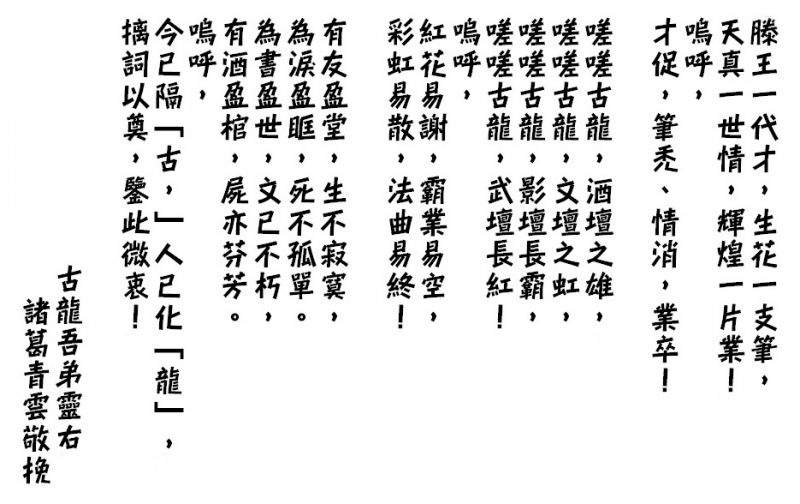 滕王一代才，生花一支筆，
天真一世情，輝煌一片業！
嗚呼，
才促，筆禿、情消，業卒！
嗟嗟古龍，酒壇之雄，
嗟嗟古龍，文壇之虹，
嗟嗟古龍，影壇長霸，
嗟嗟古龍，武壇長紅！
嗚呼，
紅花易謝，霸業易空，
彩虹易散，法曲易終！
有友盈堂，生不寂寞，
為淚盈眶，死不孤單。
為書盈世，文已不朽，
有酒盈棺，屍亦芬芳。
嗚呼，
今已隔「古，」人已化「龍」，
摛詞以奠，鑒此微衷！
古龍吾弟靈右
諸葛青雲敬挽